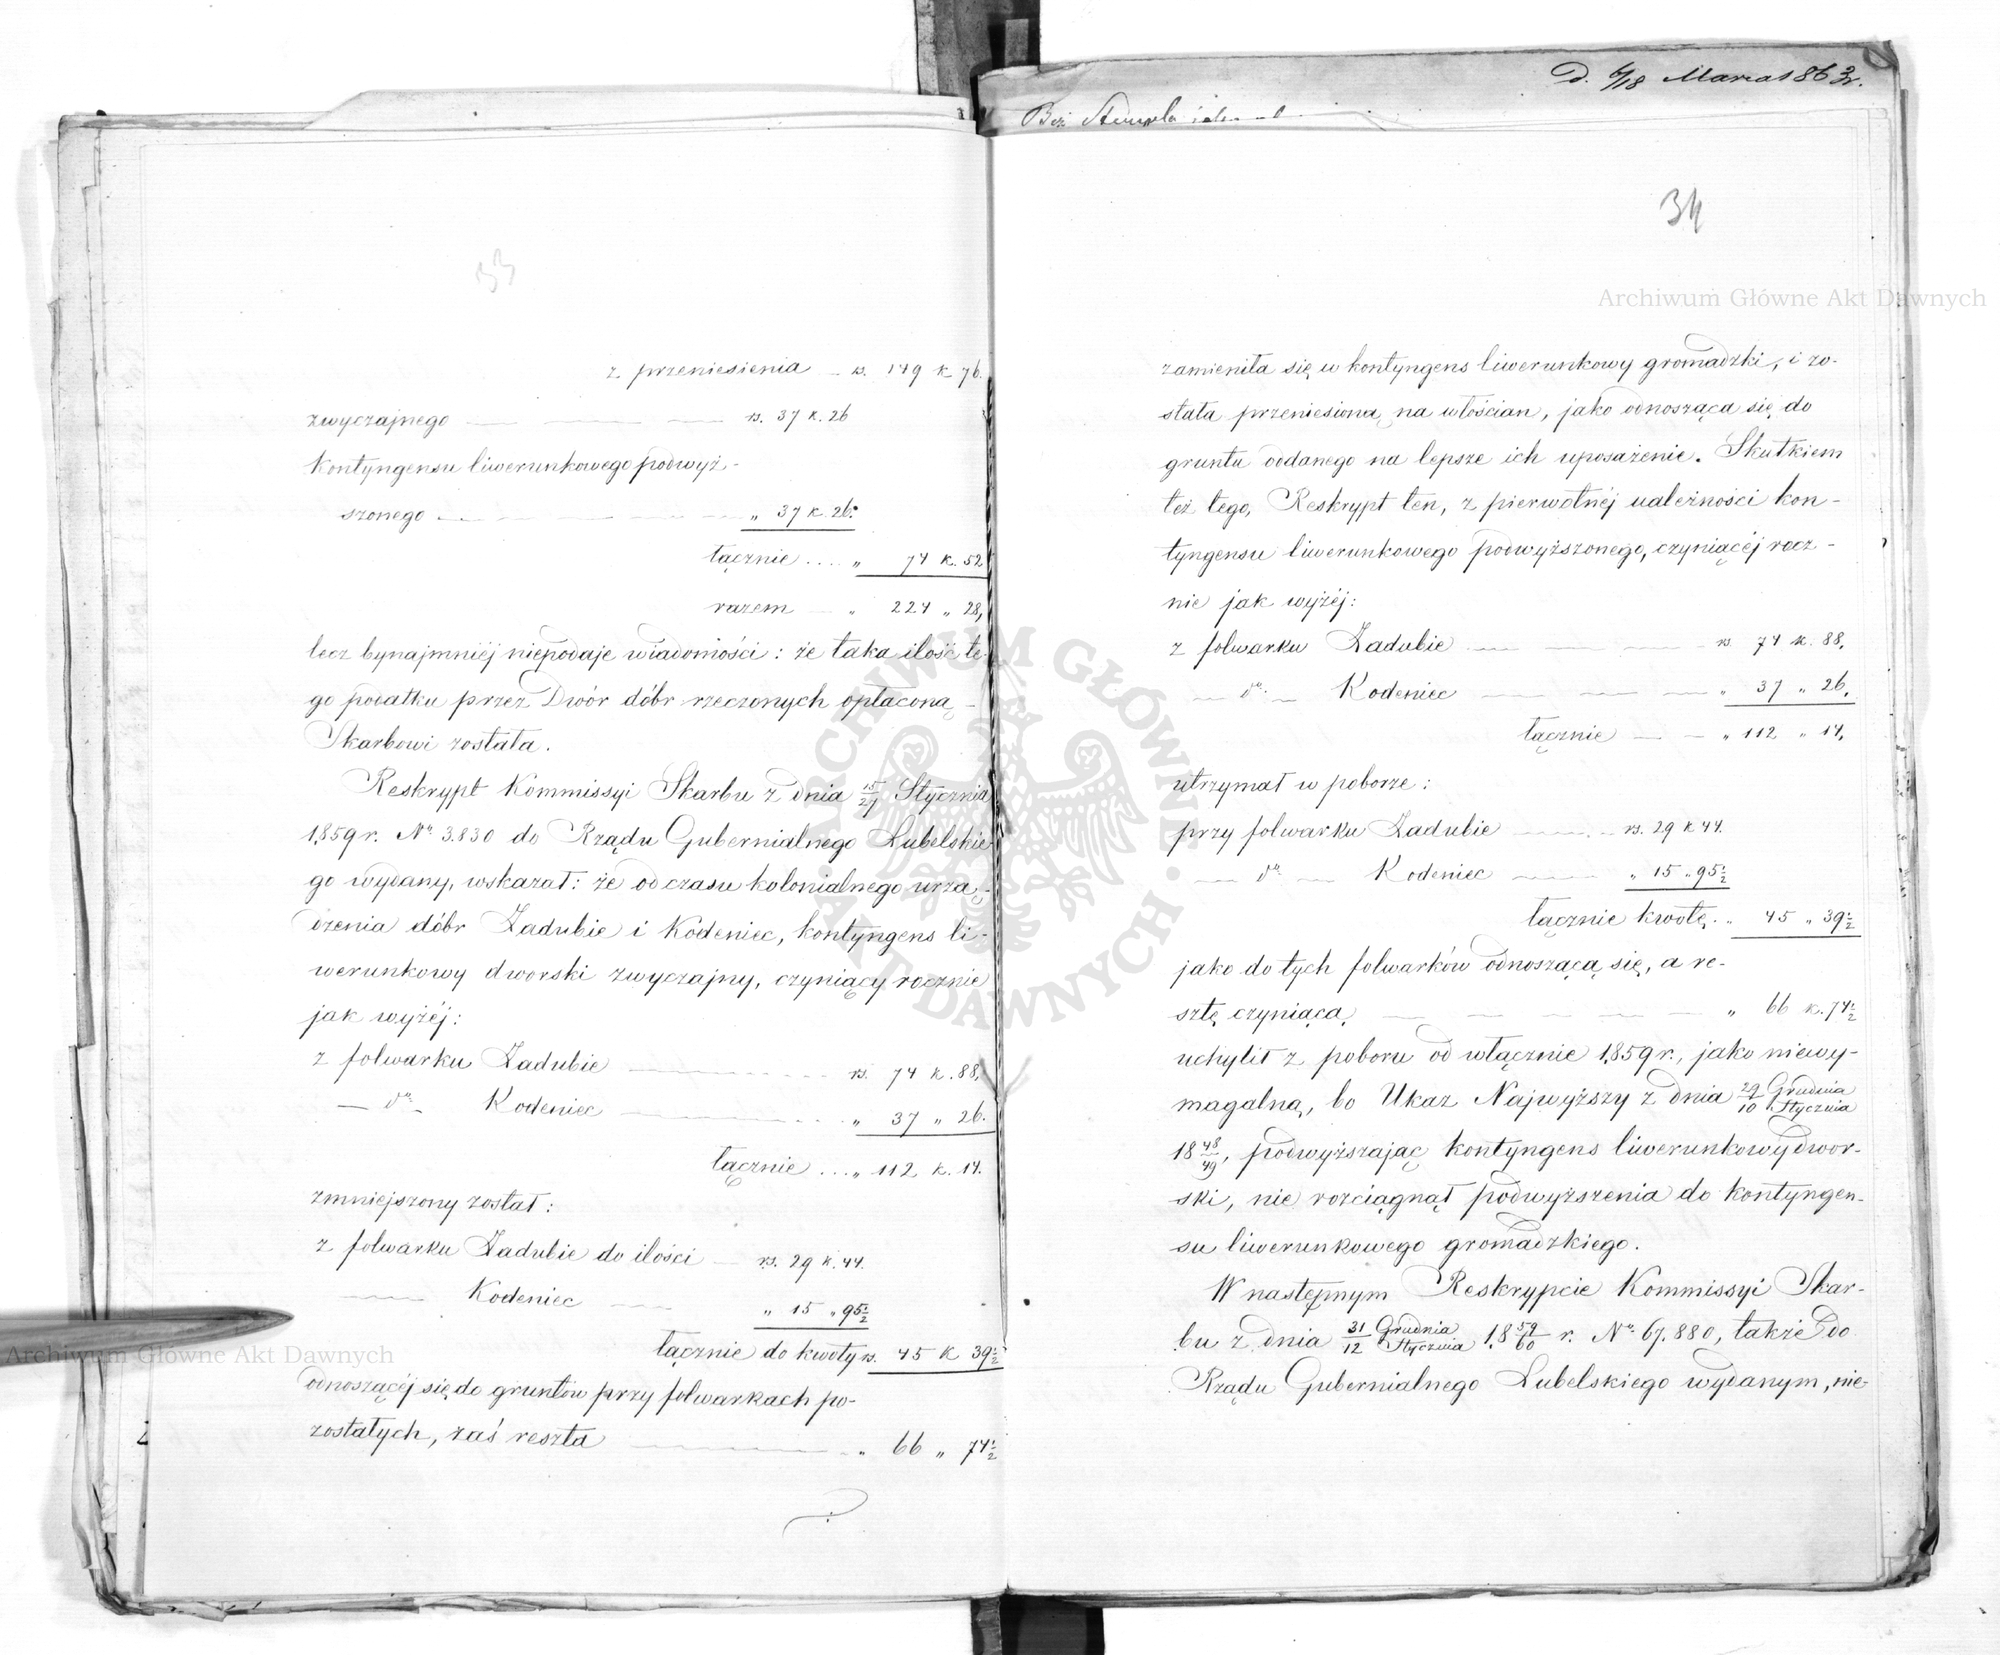 33
z przeniesienia — rs. 149 k 76.
zwyczajnego — — — rs. 37 k. 26
kontyngensu liwerunkowego podwyż-
szonego — — — „ 37 k. 26.
łącznie .... „ 74 k. 52
razem — „ 224 „ 28,
lecz bynajmniéj niepodaje wiadomości: że taka ilość te-
go podatku przez Dwór dóbr rzeczonych opłaconą
Skarbowi została.
Reskrypt Kommissyi Skarbu z dnia 15/27 Stycznia
1859 r. Nº 3.830 do Rządu Gubernialnego Lubelskie
go wydany, wskazał: że od czasu kolonialnego urzą-
dzenia dóbr Zadubie i Kodeniec, kontyngens li-
werunkowy dworski zwyczajny, czyniący rocznie
jak wyżéj:
z folwarku Zadubie — rs. 74 k. 88,
— dº — Kodeniec — „ 37 „ 26.
łącznie ... „ 112 k. 14.
zmniejszony został:
z folwarku Zadubie do ilości — rs. 29 k. 44.
— Kodeniec — „ 15 „ 95½
łącznie do kwoty rs. 45 k 39½
odnoszącéj się do gruntów przy folwarkach po-
zostałych, zaś reszta — „ 66 „ 74½
D. 6/18 Marca 1863 r.
Bez Stempla
34
zamieniła się w kontyngens liwerunkowy gromadzki, i zo-
stała przeniesioną na włościan, jako odnosząca się do
gruntu oddanego na lepsze ich uposażenie. Skutkiem
też tego, Reskrypt ten, z pierwotnéj należności kon-
tyngensu liwerunkowego podwyższonego, czyniącéj rocz-
nie jak wyżéj:
z folwarku Zadubie — — — rs 74 k. 88,
— dº — Kodeniec — — — „ 37 „ 26,
łącznie — — „ 112 „ 14,
utrzymał w poborze:
przy folwarku Zadubie — rs. 29 k 44.
— dº — Kodeniec — „ 15 „ 95½
łącznie kwotę .. 45 „ 39½
jako do tych folwarków odnoszącą się, a re-
sztę czyniącą — — — — „ 66 k. 74½
uchylił z poboru od włącznie 1859 r., jako niewy-
magalną, bo Ukaz Najwyższy z dnia 29/10 Grudnia/Stycznia
18 48/49, podwyższając kontyngens liwerunkowy dwor-
ski, nie rozciągnął podwyższenia do kontyngen-
su liwerunkowego gromadzkiego.
W następnym Reskrypcie Kommissyi Skar-
bu z dnia 31/12 Grudnia/Stycznia 18 59/60 r. Nº 67.880, także do
Rządu Gubernialnego Lubelskiego wydanym, nie-
Archiwum Główne Akt Dawnych
Archiwum Główne Akt Dawnych
ARCHIWUM GŁÓWNE · AKT DAWNYCH ·